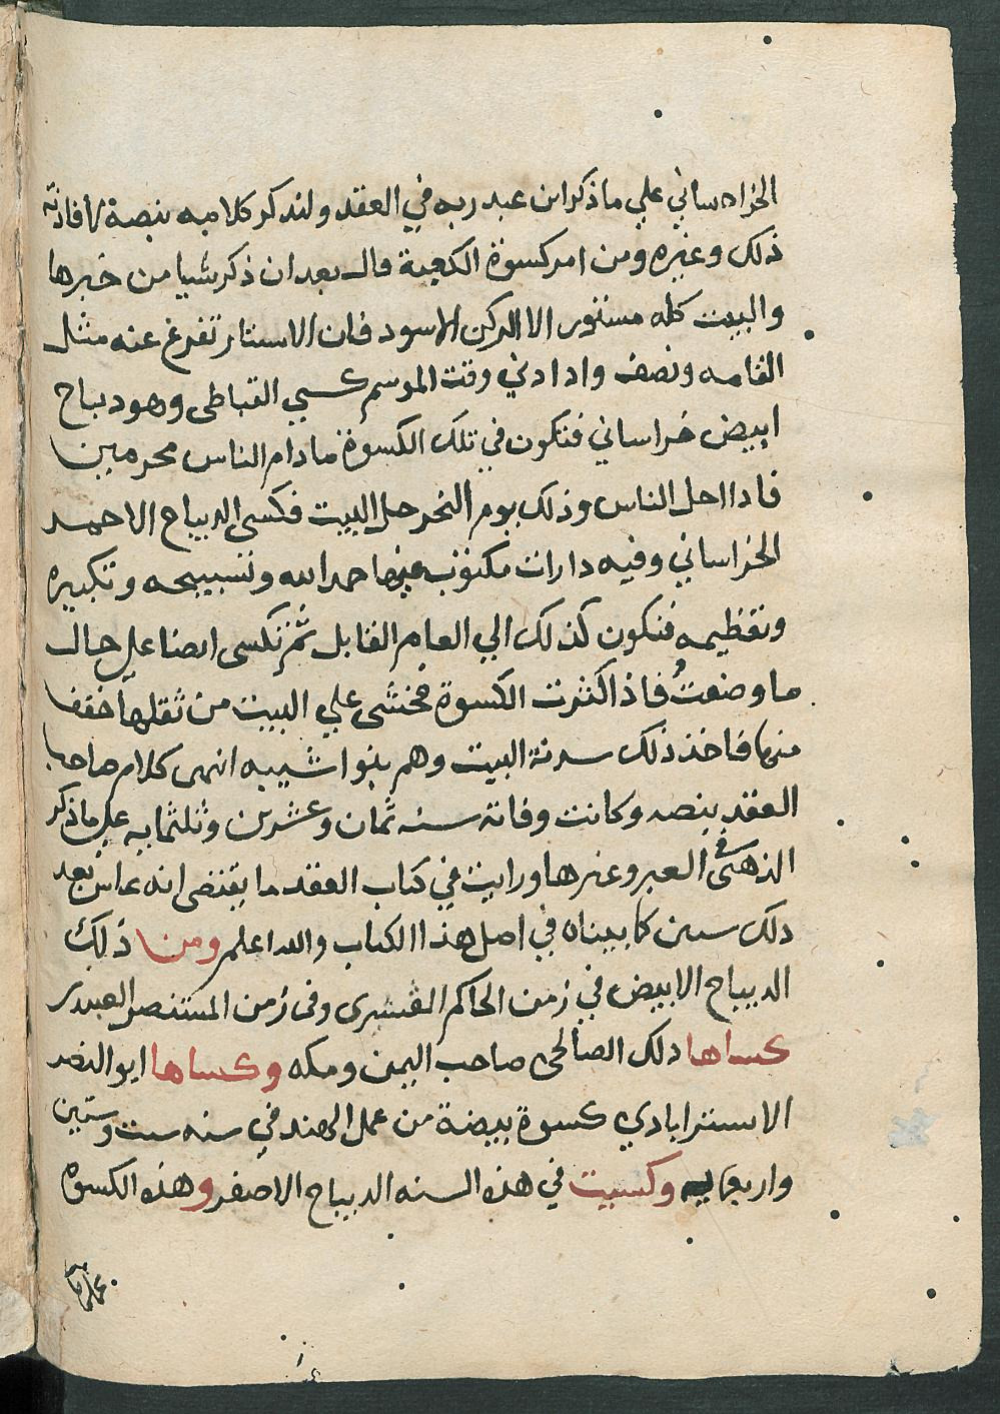 الخراساني علي ما ذكر ابن عبد ربه في العقد ولنذكر كلامه بنصه لافادته
ذلك وغيره ومن امر كسوة الكعبة قال بعد ان ذكر شيا من خبرها
والبيت كله مستور الا الركن الاسود فان الاستار تفرغ عنه مثل
القامه ونصف واذا دني وقت الموسم كسي القباطى وهو ديباج
ابيض خراساني فتكون في تلك الكسوة ما دام الناس محرمين
فاذا احل الناس وذلك يوم النحر حل البيت فكسى الديباج الاحمر
الخراساني وفيه دارات مكتوب فيها حمد الله وتسبيحه وتكبيره
وتعظيمه فتكون كذلك الي العام القابل ثم تكسى ايضا علي حال
ما وصفت فاذا كثرت الكسوة فخشى علي البيت من ثقلها خفف
منها فاخذ ذلك سدنة البيت وهم بنوا شيبه انتهى كلام صاحب
العقد بنصه وكانت وفاته سنه ثمان وعشرين وثلثمايه علي ما ذكر
الذهبى فى العبر وغيرها ورايت في كتاب العقد ما يقتضى انه عاش بعد
ذلك سنين كما بيناه في اصل هذا الكتاب والله اعلم ومن ذلك
الديباج الابيض في زمن الحاكم العبيدى وفى زمن المستنصر العبيدى
كساها ذلك الصالحى صاحب اليمن ومكه وكساها ابو النصر
الاستراباذي كسوة بيضة من عمل الهند في سنه ست وستين
واربعمايه وكسيت في هذه السنه الديباج الاصفر وهذه الكسوة